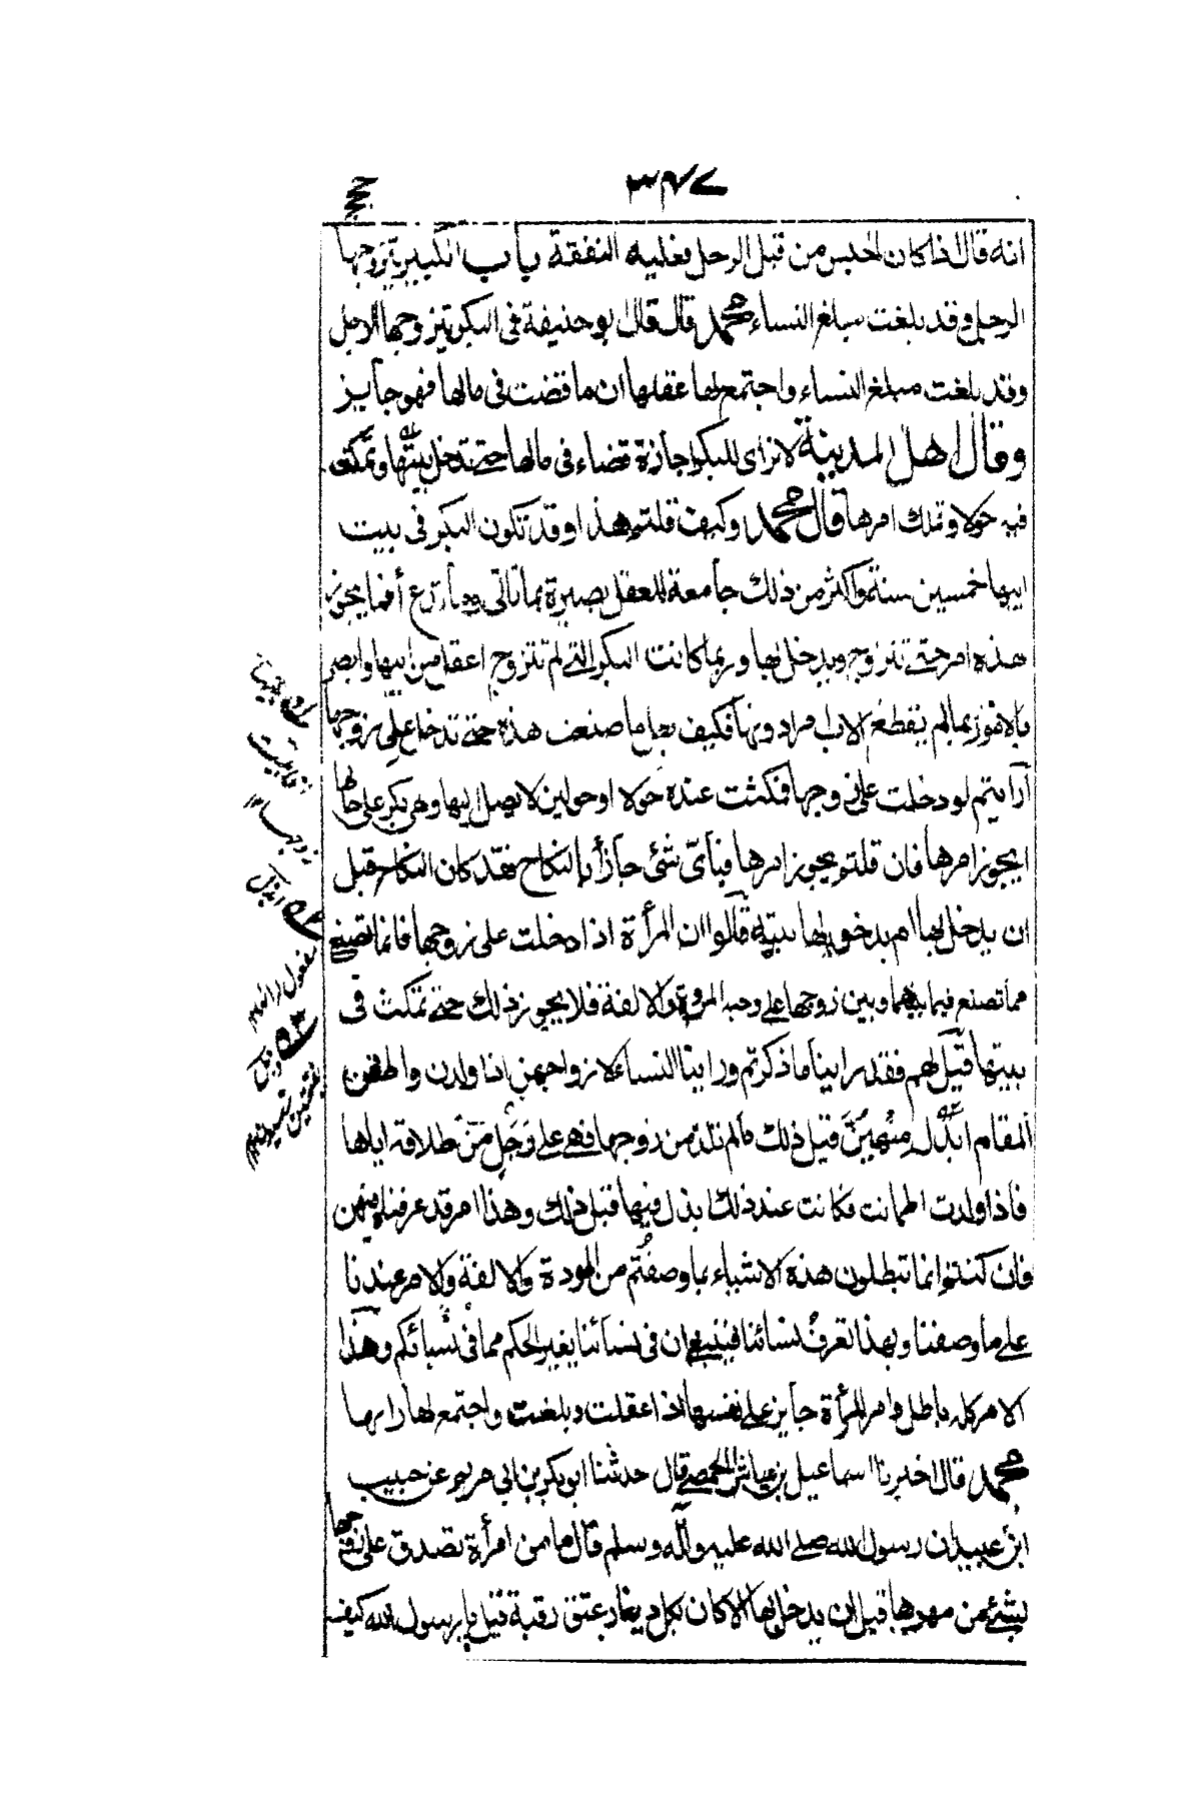 ٣٤٧
حجج
انه قال اذا كان الحبس من قبل الرجل فعليه النفقة باب الكبيرة يتزوجها
الرجل وقد بلغت مبلغ النساء محمد قال قال ابو حنيفة فى البكر يتزوجها الرجل
وقد بلغت مبلغ النساء واجتمع لها عقلها ان ما قضت فى مالها فهو جايز
وقال اهل المدينة لا نرى للبكر اجازة قضاء فى مالها حتى تدخل بيتها وتمكث
فيه حولا وتملك امرها قال محمد وكيف قلتم هذا وقد تكون البكر فى بيت
ابيها خمسين سنة واكثر من ذلك جامعة للعقل بصيرة بما تاتى وما تدع أفما يجوز
هذه امر حتى تتزوج ويدخل بها وربما كانت البكر التى لم تتزوج اعقل من ابيها وابصر
بالامور بما لم يقطع الاب مراد ونها فكيف بطل ما صنعت هذه حتى تدخل على زوجها
أرأيتم لو دخلت على زوجها فمكثت عنده حولا او حولين لا يصل اليها وهى بكر على حالها
ايجوز امرها فان قلتم يجوز امرها فبأىّ شئ جاز أبالنكاح فقد كان النكاح قبل
ان يدخل بها ام بدخولها بيته قالوا ان المرأة اذا دخلت على زوجها فانما تصنع
مما تصنع فيما بينهما وبين زوجها على وجه المروة والالفة فلا يجوز ذلك حتى تمكث فى
بيتها قيل لهم فقد راينا ما ذكرتم وراينا النساء لازواجهن اذا ولدن واطمأن
المقام ابذل منهنّ قبل ذلك مالم تلد من زوجها فهى على وجل من طلاقه اياها
فاذا ولدت اطمانت فكانت عند ذلك ابذل فيها قبل ذلك وهذا امر قد عرفناه منهن
فان كنتم انما تبطلون هذه الاشياء بما وصفتم من المودة والالفة والامر عندنا
على ما وصفنا وبهذا تعرف نسائنا فينبغى ان فى نسائنا بغير الحكم مما فى نسائكم وهذا
الامر كله باطل وامر المرأة جايز على نفسها اذا عقلت وبلغت واجتمع لها رايها
محمد قال اخبرنا اسماعيل بن عياش الحمصى قال حدثنا ابو بكر بن ابى مريم عن حبيب
ابن عبيد ان رسول الله صلى الله عليه وآله وسلم قال ما من امرأة تصدق على زوجها
بشئ من مهرها قبل ان يدخل بها الا كان بكل دينار عتق رقبة قيل يا رسول الله كيف